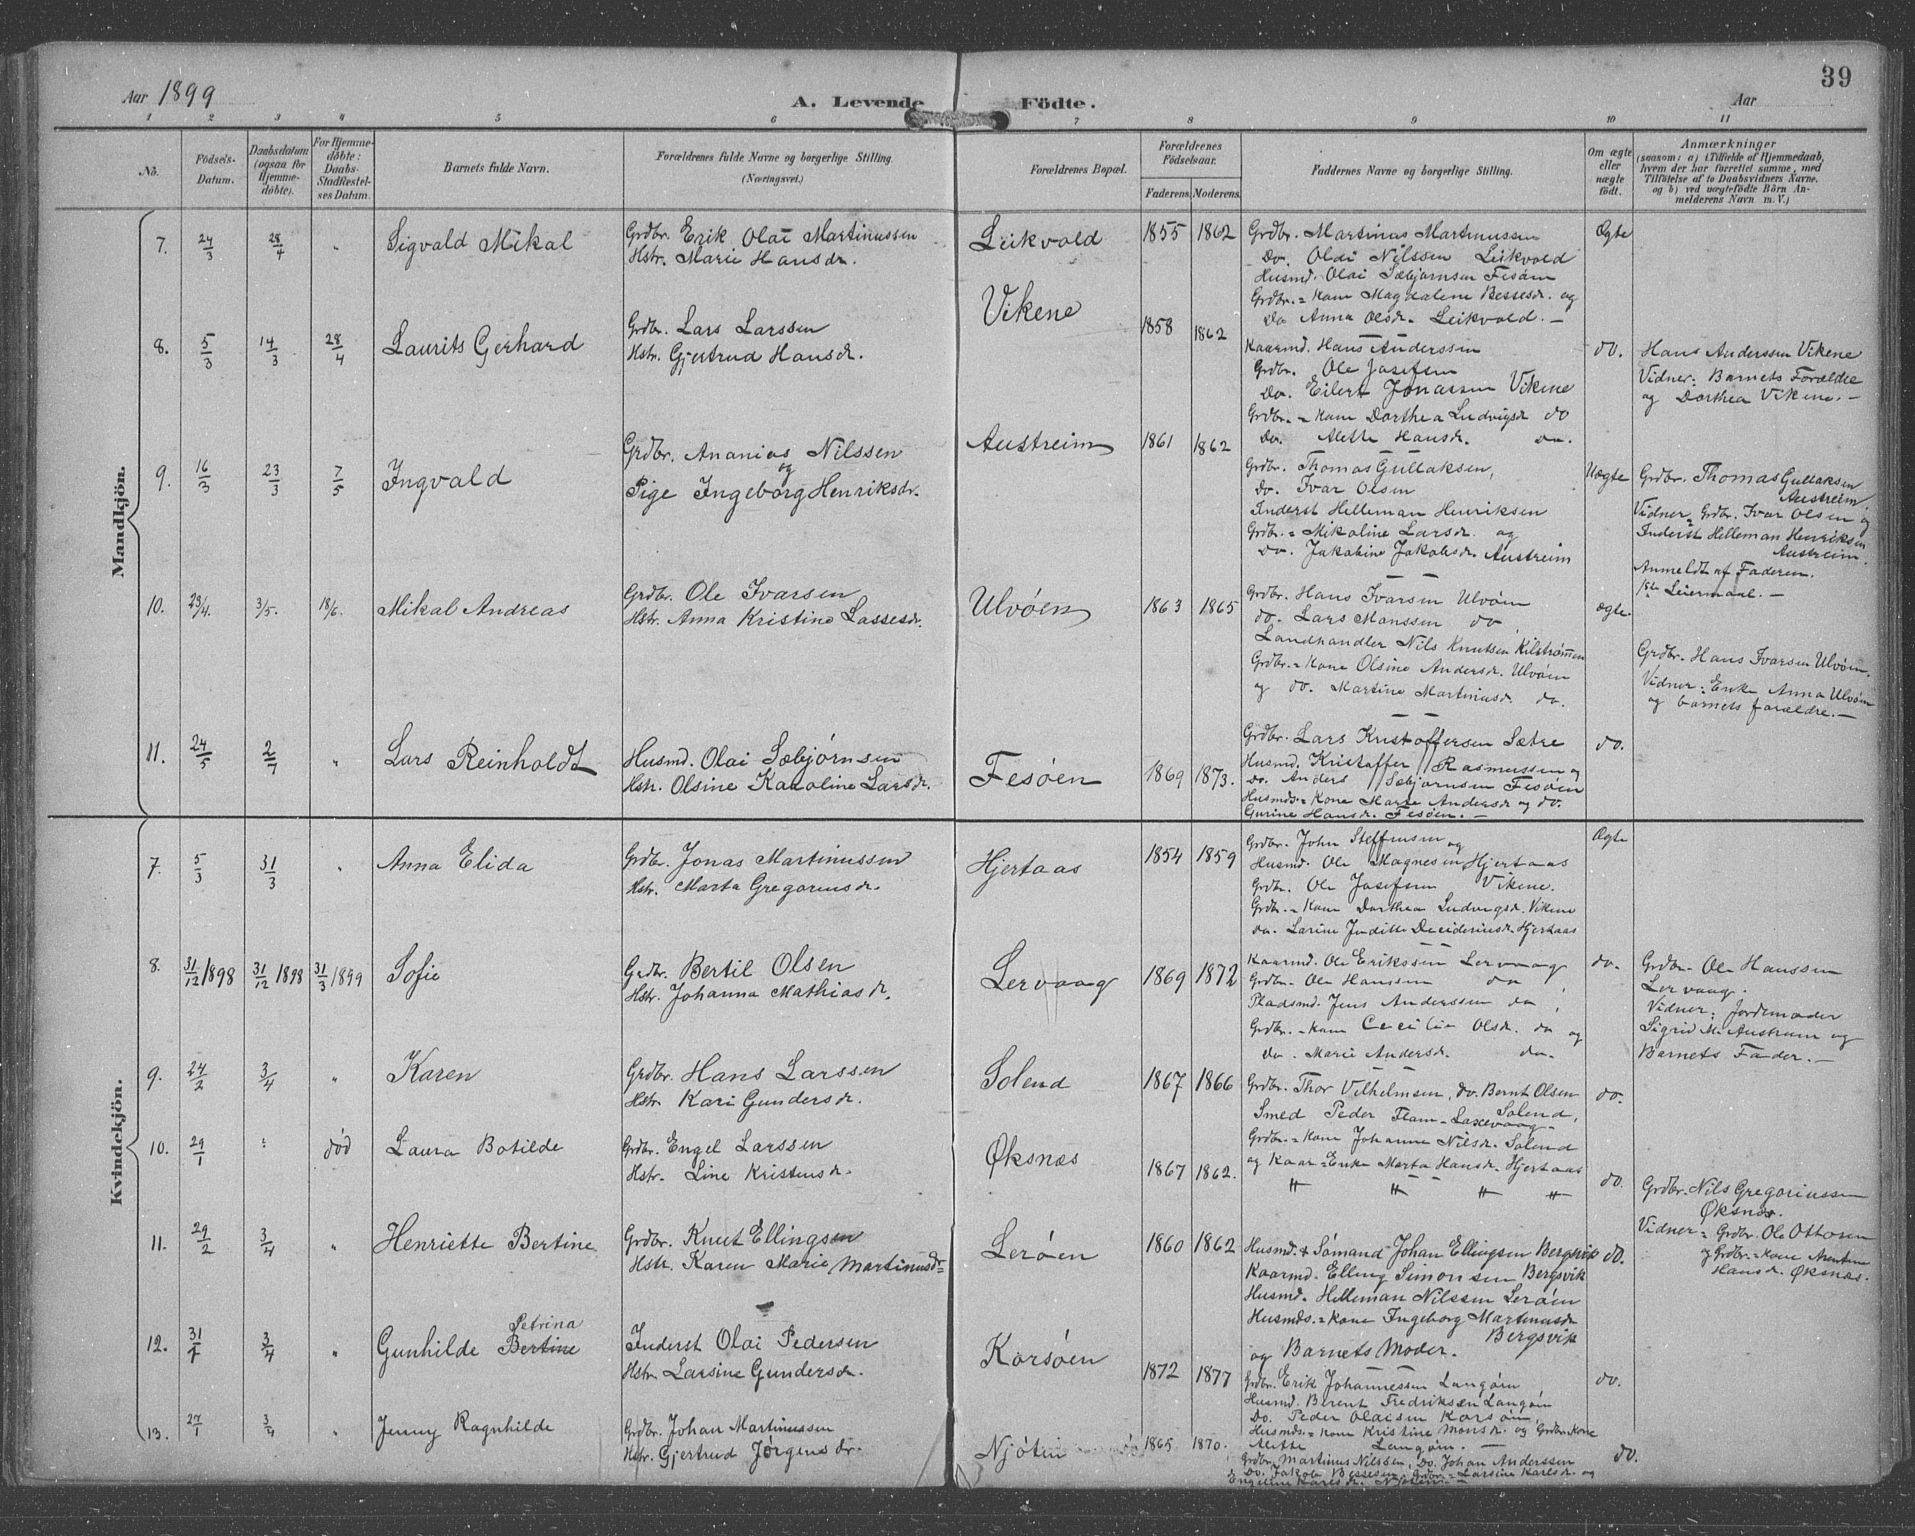 Aar 1899
A. Levende Födte.
Aar
39
1 2 3 4 5 6 7 8 9 10 11
No.
Födsels-Datum.
Daabsdatum (ogsaa for Hjemme-döbte).
For Hjemme-döbte: Daabs-Stadfæstel-ses Datum.
Barnets fulde Navn.
Forældrenes fulde Navne og borgerlige Stilling. (Næringsvei.)
Forældrenes Bopæl.
Forældrenes Födselsaar.
Faderens. Moderens.
Faddernes Navne og borgerlige Stilling.
Om ægte eller uægte födt.
Anmærkninger
(saasom: a) i Tilfælde af Hjemmedaab,
hvem der har forrettet samme, med
Tilföielse af to Daabsvidners Navne,
og b) ved uægtefödte Börn An-
melderens Navn m. V.)
Mandkjön.
7. 24/3 28/4 " Sigvald Mikal
Grdbr. Erik Olai Martinussen
Hstr. Marie Hansdr.
Leikvold 1855 1862
Grdbr. Martinus Martinussen
Do. Olai Nilssen Leikvold
Husmd. Olai Sæbjørnsen Fesöen
Grdbr. = Kone Magdalene Bessesdr. og
Do Anna Olsdr. Leikvold. —
Ægte
8. 5/3 14/3 28/4 Laurits Gerhard
Grdbr. Lars Larssen
Hstr. Gjertrud Hansdr.
Vikene 1858 1862
Kaarmd. Hans Anderssen
Grdbr. Ole Josefsen
Do. Eilert Jonassen Vikene
Grdbr. = Kone Dorthea Ludvigsdr do
Do. Alette Hansdr. do.
do.
Hans Anderssen Vikene
Vidner: Barnets Forældre
og Dorthea Vikene. —
9. 16/3 23/3 7/5 Ingvald
Grdbr. Ananias Nilssen
og
Pige Ingeborg Henriksdr.
Austreim 1861 1862
Grdbr. Thomas Gullaksen,
do. Ivar Olsen
Inderst Helleman Henriksen
Grdbr. = Mikaline Larsdr. og
do. Jakobine Jakobsdr. Austreim
Uægte
Grdbr. Thomas Gullaksen
Austreim.
Vidner = Grdbr. Ivar Olsen og
Inderst Helleman Henriksen
Austreim.
Anmeldt af Faderen.
1ste Leiermaal. —
10. 23/4. 3/5. 18/6. Mikal Andreas
Grdbr. Ole Ivarsen
Hstr. Anna Kristine Lassesdr.
Ulvöen 1863 1865
Grdbr. Hans Ivarsen Ulvöen
do. Lars Monssen do,
Landhandler Nils Knutsen Kilströmmen
Grdbr. = Kone Olsine Andersdr. Ulvöen
og do. Martine Martinusdr. do.
ægte.
Grdbr. Hans Ivarsen Ulvöen.
Vidner: Enke Anna Ulvöen
og barnets forældre. —
11. 24/5 2/7 " Lars Reinholdt
Husmd. Olai Sæbjørnsen
Hstr. Olsine Karoline Larsdr.
Fesöen 1869 1873.
Grdbr. Lars Kristoffersen Sætre
Husmd. Kristaffer Rasmussen og
do. Anders Sæbjørnsen Fesöen
Husmds. = Kone Marte Andersdr og do.
Gurine Hansdr. Fesöen. —
do.
Kvindekjön.
7. 5/3 31/3 " Anna Elida
Grdbr. Jonas Martinussen
Hstr. Marta Gregoriusdr.
Hjertaas 1854 1859
Grdbr. John Steffensen og
Husmd. Ole Magnesen Hjertaas
Grdbr. Ole Josefsen Vikene.
Grdbr. = Kone Dorthea Ludvigsdr. Vikene
do. Larine Juditte Decideriusdr. Hjertaas
Ægte
8. 31/12 1898 31/12 1898 31/3 1899 Sofie
Grdbr. Bertil Olsen
Hstr. Johanna Mathiasdr.
Lervaag 1869 1872
Kaarmd. Ole Erikssen Lervaag
Grdbr. Ole Hanssen do,
Pladsmd. Jens Anderssen do,
Grdbr. = Kone Cecilie Olsdr. do og
do. Marie Andersdr. do.
do.
Grdbr. Ole Hanssen
Lervaag.
Vidner: Jordemoder
Sigrid M. Austreim og
Barnets Fader. —
9. 24/2 3/4 " Karen
Grdbr. Hans Larssen
Hstr. Kari Gundersdr.
Solend 1867 1866
Grdbr. Thor Vilhelmsen, do. Bernt Olsen
Solend,
Smed Peder Flam - Laxevaag -
Grdbr. = Kone Johanne Nilsdr. Solend
og Kaar = Enke Marta Hansdr. Hjertaas
do.
10. 29/1 " död Laura Botilde
Grdbr. Engel Larssen
Hstr. Line Kristensdr.
Øksnæs 1867 1862.
" " " "
do.
Grdbr. Nils Gregoriussen
Øksnæs.
Vidner = Grdbr. Ole Ottosen
og Grdbr. = Kone Arentine
Hansdr. Øksnæs.
11. 29/2 3/4 " Henriette Bertine
Grdbr. Knut Ellingsen
Hstr. Karen Marie Martinusdr
Leröen 1860 1862
Husmd. & Sömand Johan Ellingsen Bergsvik
Kaarmd. Elling Simonsen Bergsvik
Husmd. Helleman Nilssen Leröen
Husmds. = Kone Ingeborg Martinusdr
Bergsvik
og Barnets Moder.
do.
12. 31/1 3/4 " Gunhilde Bertine
Petrina
Inderst Olai Pedersen
Hstr. Larsine Gundersdr.
Korsöen 1872 1877
Grdbr. Erik Johannessen Langöen
Husmd. Berent Fredriksen Langöen
Do. Peder Olaisen Korsöen,
Husmds. = Kone Kristine Monsdr. og Grdbr. Kone
Alette Langöen. —
do.
13. 27/1 3/4 Jenny Ragnhilde
Grdbr. Johan Martinussen
Hstr. Gjertrud Jörgensdr.
Njöten 1865 1870.
Grdbr. Martinus Nilssen, Do. Johan Anderssen
Do. Jakob Bessesen, Grdbr. = Larsine Karlsdr. og
Engeline Karlsdr. Njöten —
do.